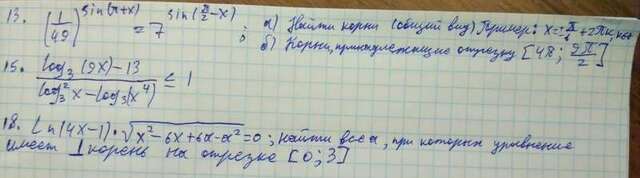 13. (1/49)^sin(π+x) = 7^sin(π/2-x) ; а) Найти корни (общий вид) Пример: x=±π/4+2πk, k∈
б) Корни, принадлежащие отрезку [48; 9π/2]
15. (log₃(9x)-13)/(log₃²x-log₃(x⁴)) ≤ 1
18. Ln(4x-1)·√(x²-6x+6a-a²)=0; найти все a, при которых уравнение
имеет 1 корень на отрезке [0;3]